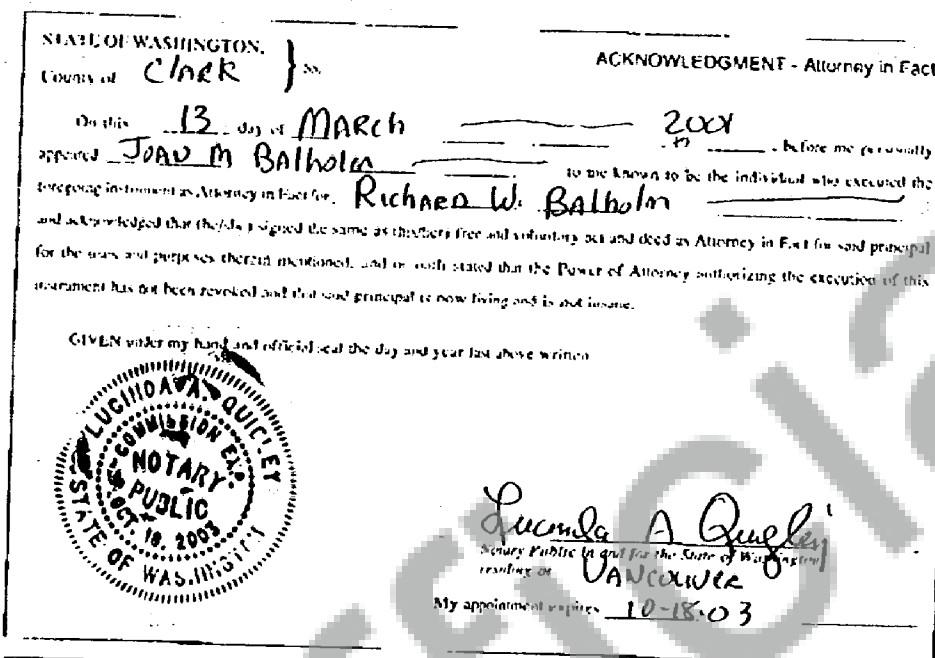 STATE OF WASHINGTON,
County of Clark } ss.
ACKNOWLEDGMENT - Attorney in Fact
On this 13 day of MARCH 2001, before me personally
appeared JOAN M BALHOLM to me known to be the individual who executed the
foregoing instrument as Attorney in Fact for Richard W. Balholm
and acknowledged that (he/she) signed the same as (his/her) free and voluntary act and deed as Attorney in Fact for said principal
for the uses and purposes therein mentioned, and on oath stated that the Power of Attorney authorizing the execution of this
instrument has not been revoked and that said principal is now living and is not insane.
GIVEN under my hand and official seal the day and year last above written
LUCINDA A. QUIGLEY
COMMISSION EXP.
NOTARY
PUBLIC
OCT. 18, 2003
STATE OF WASHINGTON
Lucinda A Quigley
Notary Public in and for the State of Washington
residing at VANCOUVER
My appointment expires 10-18-03